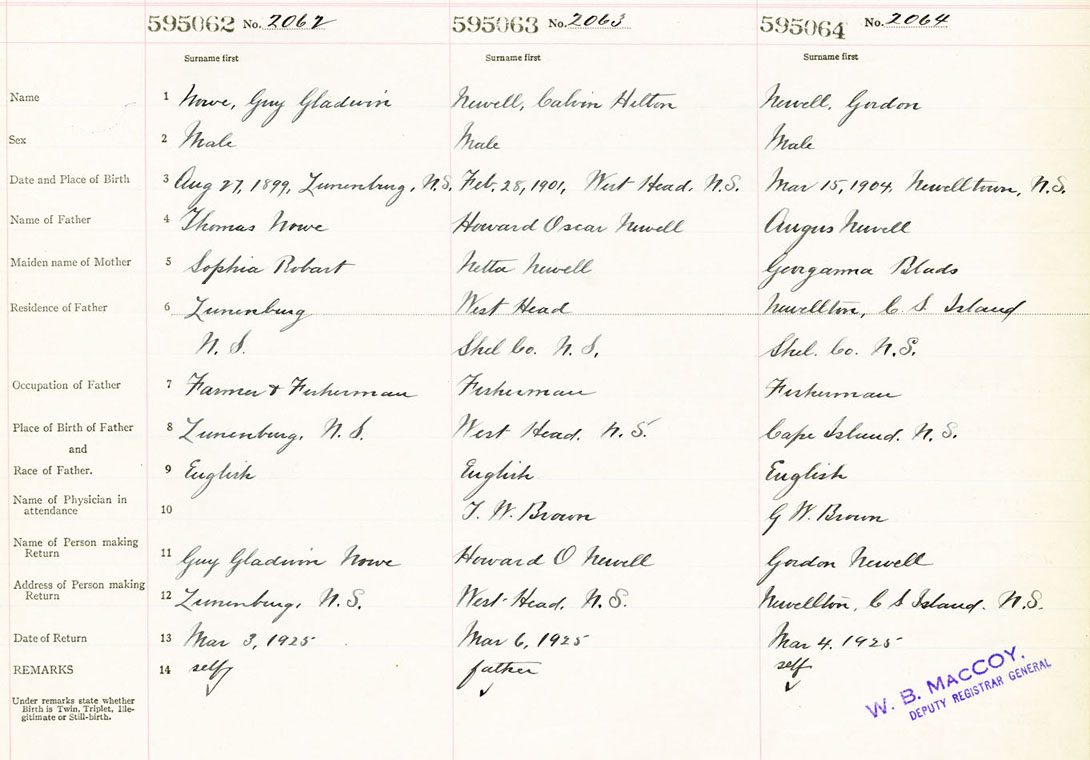 595062 No. 2062 595063 No. 2063 595064 No. 2064
Surname first Surname first Surname first
Name 1 Nowe, Guy Gladwin Newell, Calvin Hilton Newell, Gordon
Sex 2 Male Male Male
Date and Place of Birth 3 Aug 27, 1899, Lunenburg, N.S. Feb. 28, 1901, West Head, N.S. Mar 15, 1904, Newelltown, N.S.
Name of Father 4 Thomas Nowe Howard Oscar Newell Angus Newell
Maiden name of Mother 5 Sophia Robart Netta Newell Georganna Blads
Residence of Father 6 Lunenburg West Head Newellton, C. S. Island
N. S. Shel Co. N. S. Shel. Co. N.S.
Occupation of Father 7 Farmer & Fisherman Fisherman Fisherman
Place of Birth of Father 8 Lunenburg, N. S. West Head. N. S. Cape Island. N. S.
and
Race of Father. 9 English English English
Name of Physician in
attendance 10 T. W. Brown G W. Brown
Name of Person making
Return 11 Guy Gladwin Nowe Howard O Newell Gordon Newell
Address of Person making
Return 12 Lunenburg, N. S. West-Head, N. S. Newellton, C S Island. N.S.
Date of Return 13 Mar 3, 1925 Mar 6, 1925 Mar 4, 1925
REMARKS 14 self father self
Under remarks state whether
Birth is Twin, Triplet, Ille-
gitimate or Still-birth.
W. B. MACCOY,
DEPUTY REGISTRAR GENERAL